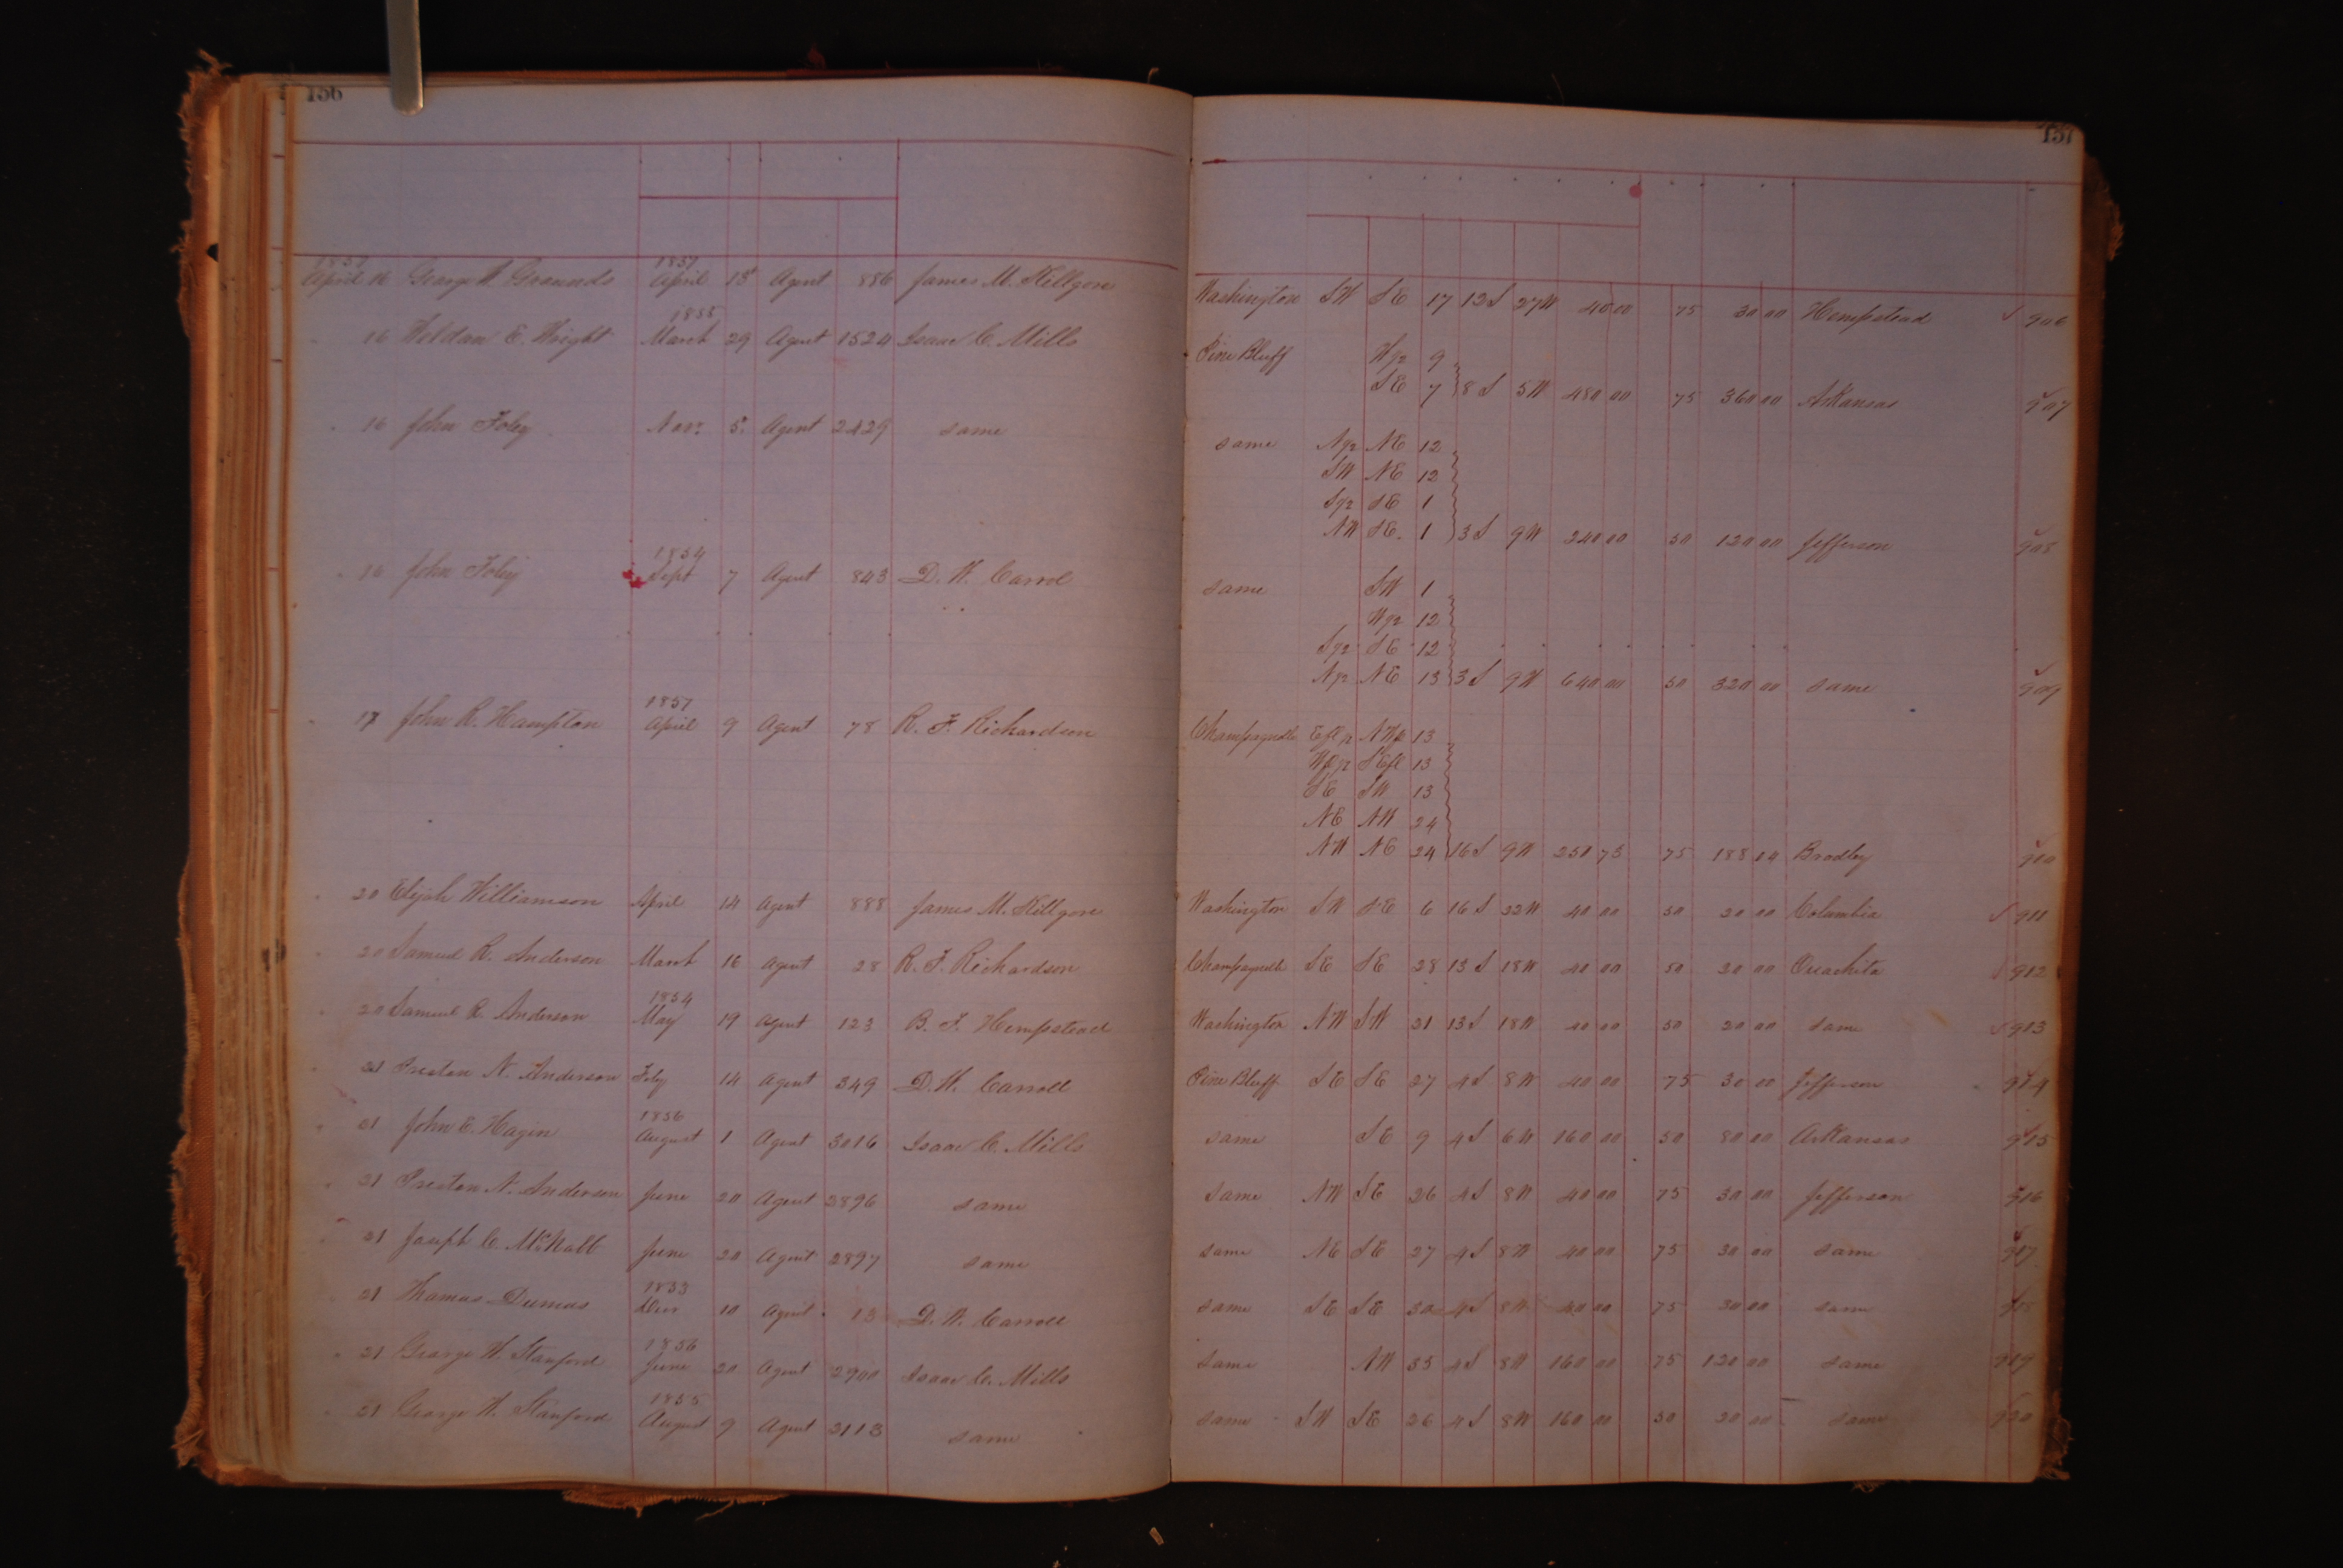 156
157
1857 1857
April 16 George W. Grounds April 15 Agent 886 James M. Killgore Washington SW SE 17 12S 27W 40 00 75 30 00 Hempstead 906
1855
16 Weldon E. Wright March 29 Agent 1524 Isaac C. Mills Pine Bluff W½ 9
SE 7 8S 5W 480 00 75 360 00 Arkansas 907
16 John Foley Nov. 5 Agent 2429 same same N½ NE 12
SW NE 12
S½ SE 1
NW SE 1 3S 9W 240 00 50 120 00 Jefferson 908
1854
16 John Foley Sept 7 Agent 843 D. W. Carrol same SW 1
W½ 12
S½ SE 12
N½ NE 13 3S 9W 640 00 50 320 00 same 909
1857
17 John R. Hampton April 9 Agent 78 R. F. Richardson Champagnolle 13
13
SE SW 13
NE NW 24
NW NE 24 16S 9W 250 73 75 188 04 Bradley 910
20 Elijah Williamson April 14 Agent 888 James M. Killgore Washington SW SE 6 16S 22W 40 00 50 20 00 Columbia 911
20 Samuel R. Anderson March 16 Agent 28 R. F. Richardson Champagnolle SE SE 28 13S 18W 40 00 50 20 00 Ouachita 912
1854
20 Samuel R. Anderson May 19 Agent 123 B. F. Hempstead Washington NW SW 21 13S 18W 40 00 50 20 00 same 913
21 Preston N. Anderson Feby 14 Agent 349 D. W. Carroll Pine Bluff SE SE 27 4S 8W 40 00 75 30 00 Jefferson 914
1856
21 John E. Hagin August 1 Agent 3016 Isaac C. Mills same SE 9 4S 6W 160 00 50 80 00 Arkansas 915
21 Preston N. Anderson June 20 Agent 2896 same same NW SE 26 4S 8W 40 00 75 30 00 Jefferson 916
21 Joseph C. McNabb June 20 Agent 2897 same same NE SE 27 4S 8W 40 00 75 30 00 same 917
1853
21 Thomas Dumas Decr 10 Agent 13 D. W. Carroll same SE SE 30 4S 8W 40 00 75 30 00 same 918
1856
21 George W. Stanford June 20 Agent 2900 Isaac C. Mills same NW 35 4S 8W 160 00 75 120 00 same 919
1855
21 George W. Stanford August 9 Agent 2113 same same SW SE 26 4S 8W 160 00 50 20 00 same 920